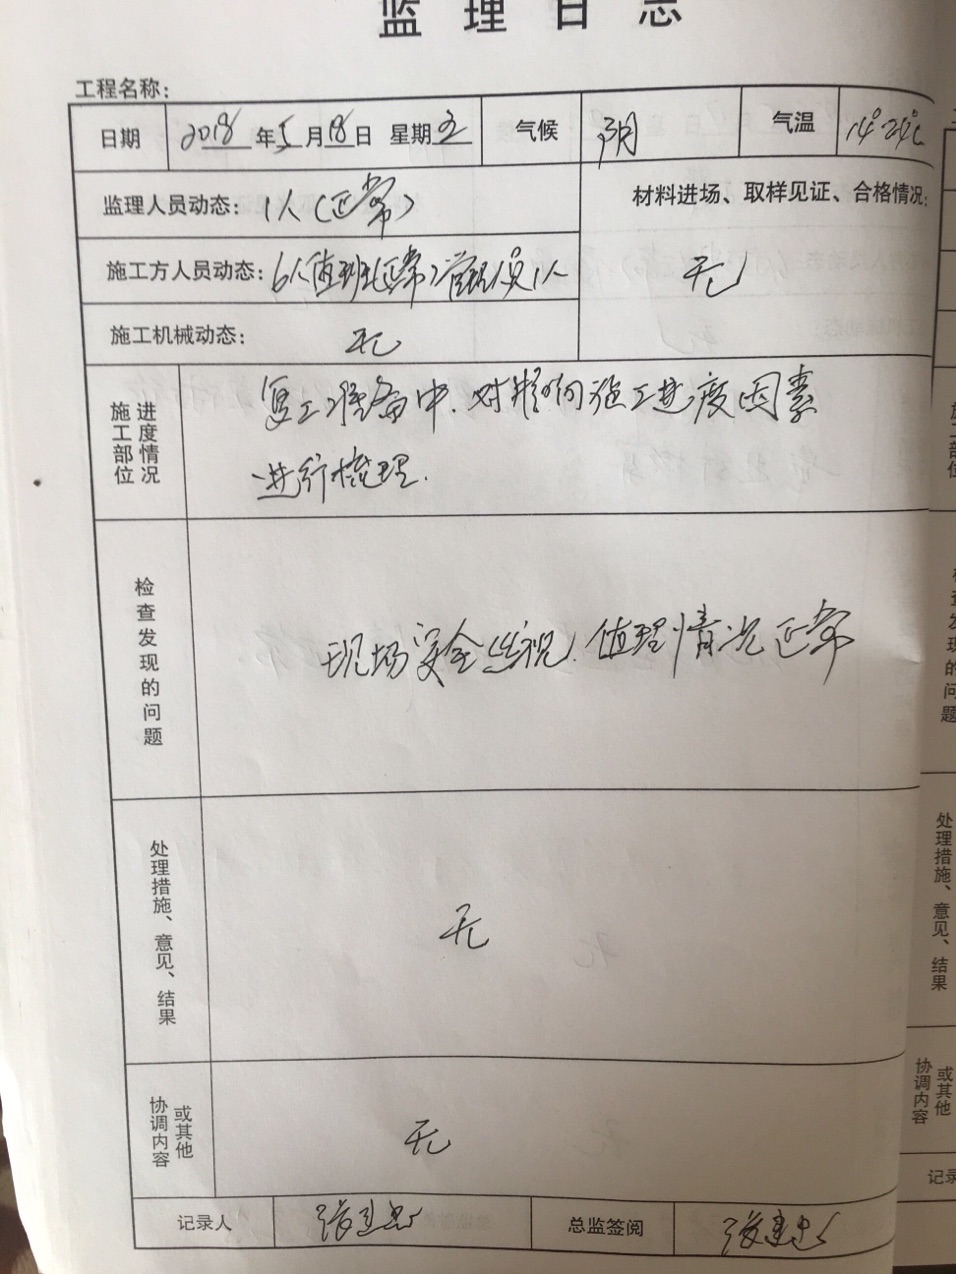 监理日志
工程名称：
日期 2018年5月18日 星期五 气候 阴 气温 14°-24℃
监理人员动态：1人（正常） 材料进场、取样见证、合格情况：
施工方人员动态：6人值班（正常）管理人员1人 无
施工机械动态： 无
施工部位进度情况
复工准备中.对影响施工进度因素
进行梳理.
检查发现的问题
现场安全巡视.值理情况正常
处理措施、意见、结果
无
协调内容或其他
无
记录人 张建忠 总监签阅 张建忠
处理措施、意见、结果
协调内容或其他